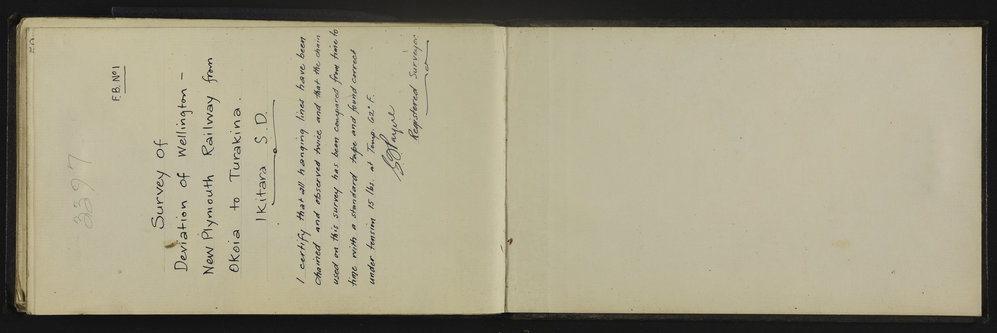 F.B. Nº1
3397
Survey of
Deviation of Wellington –
New Plymouth Railway from
Okoia to Turakina.
Ikitara S.D.
I certify that all hanging lines have been
chained and observed twice and that the chain
used on this survey has been compared from time to
time with a standard tape and found correct
under tension 15 lbs. at Temp. 62° F.
Registered Surveyor